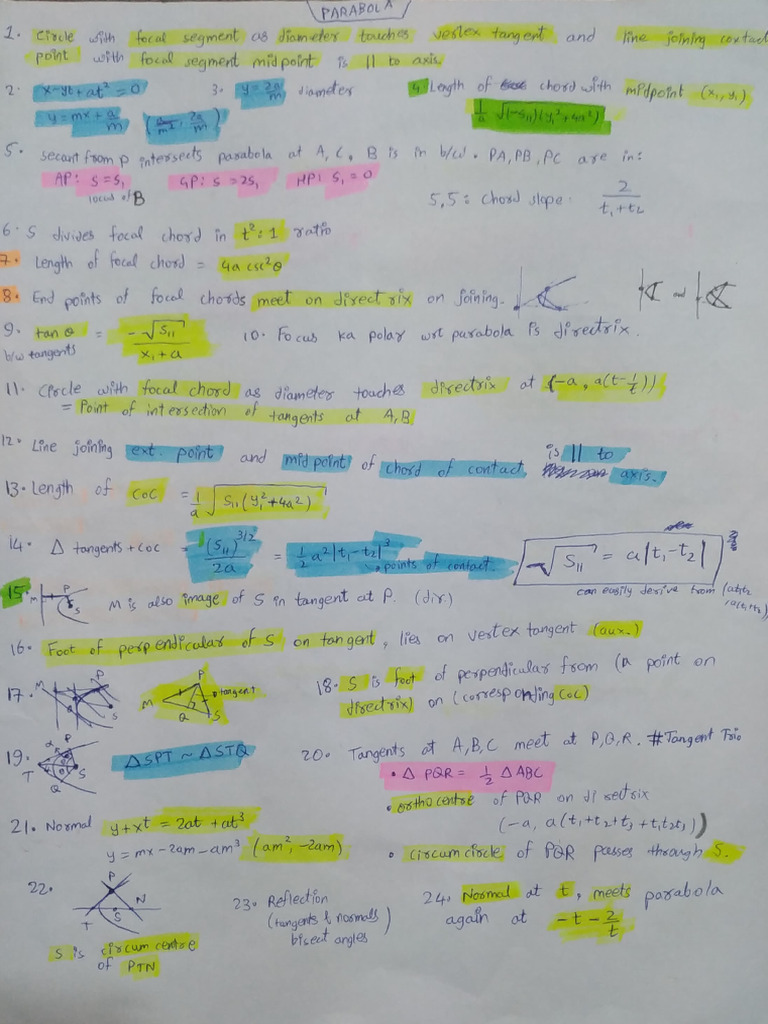 PARABOLA
1. Circle with focal segment as diameter touches vertex tangent and line joining contact
point with focal segment midpoint is || to axis.
2. x-yt+at²=0 3. y=2a/m diameter 4. Length of chord with midpoint (x₁,y₁)
y=mx+a/m (a/m², 2a/m) 1/a √(-S₁₁)(y₁²+4a²)
5. secant from P intersects parabola at A, C, B is in b/w. PA, PB, PC are in:
AP: S=S₁ GP: S=2S₁ HP: S₁=0
locus of B 5,5: chord slope: 2/(t₁+t₂)
6. S divides focal chord in t²:1 ratio
7. Length of focal chord = 4a csc²θ
8. End points of focal chords meet on directrix on joining. and
9. tan θ = -√S₁₁/(x₁+a) 10. Focus ka polar wrt parabola is directrix.
b/w tangents
11. Circle with focal chord as diameter touches directrix at (-a, a(t-1/t))
= Point of intersection of tangents at A,B
12. Line joining ext. point and midpoint of chord of contact is || to
axis.
13. Length of COC = 1/a √S₁₁(y₁²+4a²)
14. Δ tangents+COC = (S₁₁)^3/2/2a = 1/2 a²|t₁-t₂|³ √S₁₁ = a|t₁-t₂|
points of contact.
can easily derive from (at₁t₂
, a(t₁+t₂))
15. M P S M is also image of S in tangent at P. (dir.)
16. Foot of perpendicular of S on tangent, lies on vertex tangent (aux.)
17. M P Q S M P Q S tangent 18. S is foot of perpendicular from (a point on
directrix) on (corresponding COC)
19. T α P θ S Q ΔSPT ~ ΔSTQ 20. Tangents at A,B,C meet at P,Q,R. #Tangent Trio
• Δ PQR = 1/2 ΔABC
• orthocentre of PQR on directrix
(-a, a(t₁+t₂+t₃+t₁t₂t₃))
• circumcircle of PQR passes through S.
21. Normal y+xt = 2at+at³
y=mx-2am-am³ (am², -2am)
22. P T S N
S is circumcentre
of PTN
23. Reflection
(tangents & normals
bisect angles)
24. Normal at t, meets parabola
again at -t-2/t